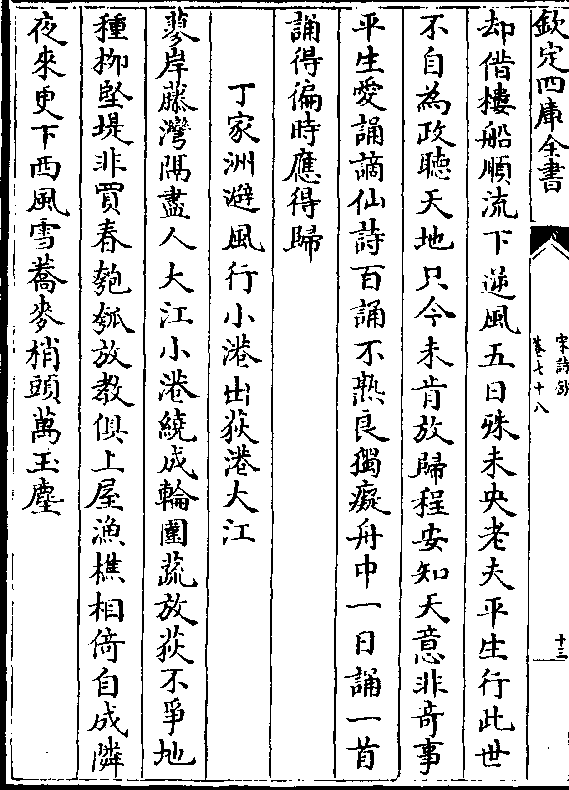 欽定四庫全書
宋詩鈔
卷七十八
十三
却借樓船順流下逆風五日殊未央老夫平生行此世
不自為政聽天地只今未肯放歸程安知天意非竒事
平生愛誦謫仙詩百誦不熟良獨癡舟中一日誦一首
誦得徧時應得歸
丁家洲避風行小港出荻港大江
蓼岸藤灣隔盡人大江小港繞成輪圍蔬放荻不爭地
種栁堅堤非買春匏瓠放教俱上屋漁樵相倚自成隣
夜來更下西風雪蕎麥梢頭萬玉塵